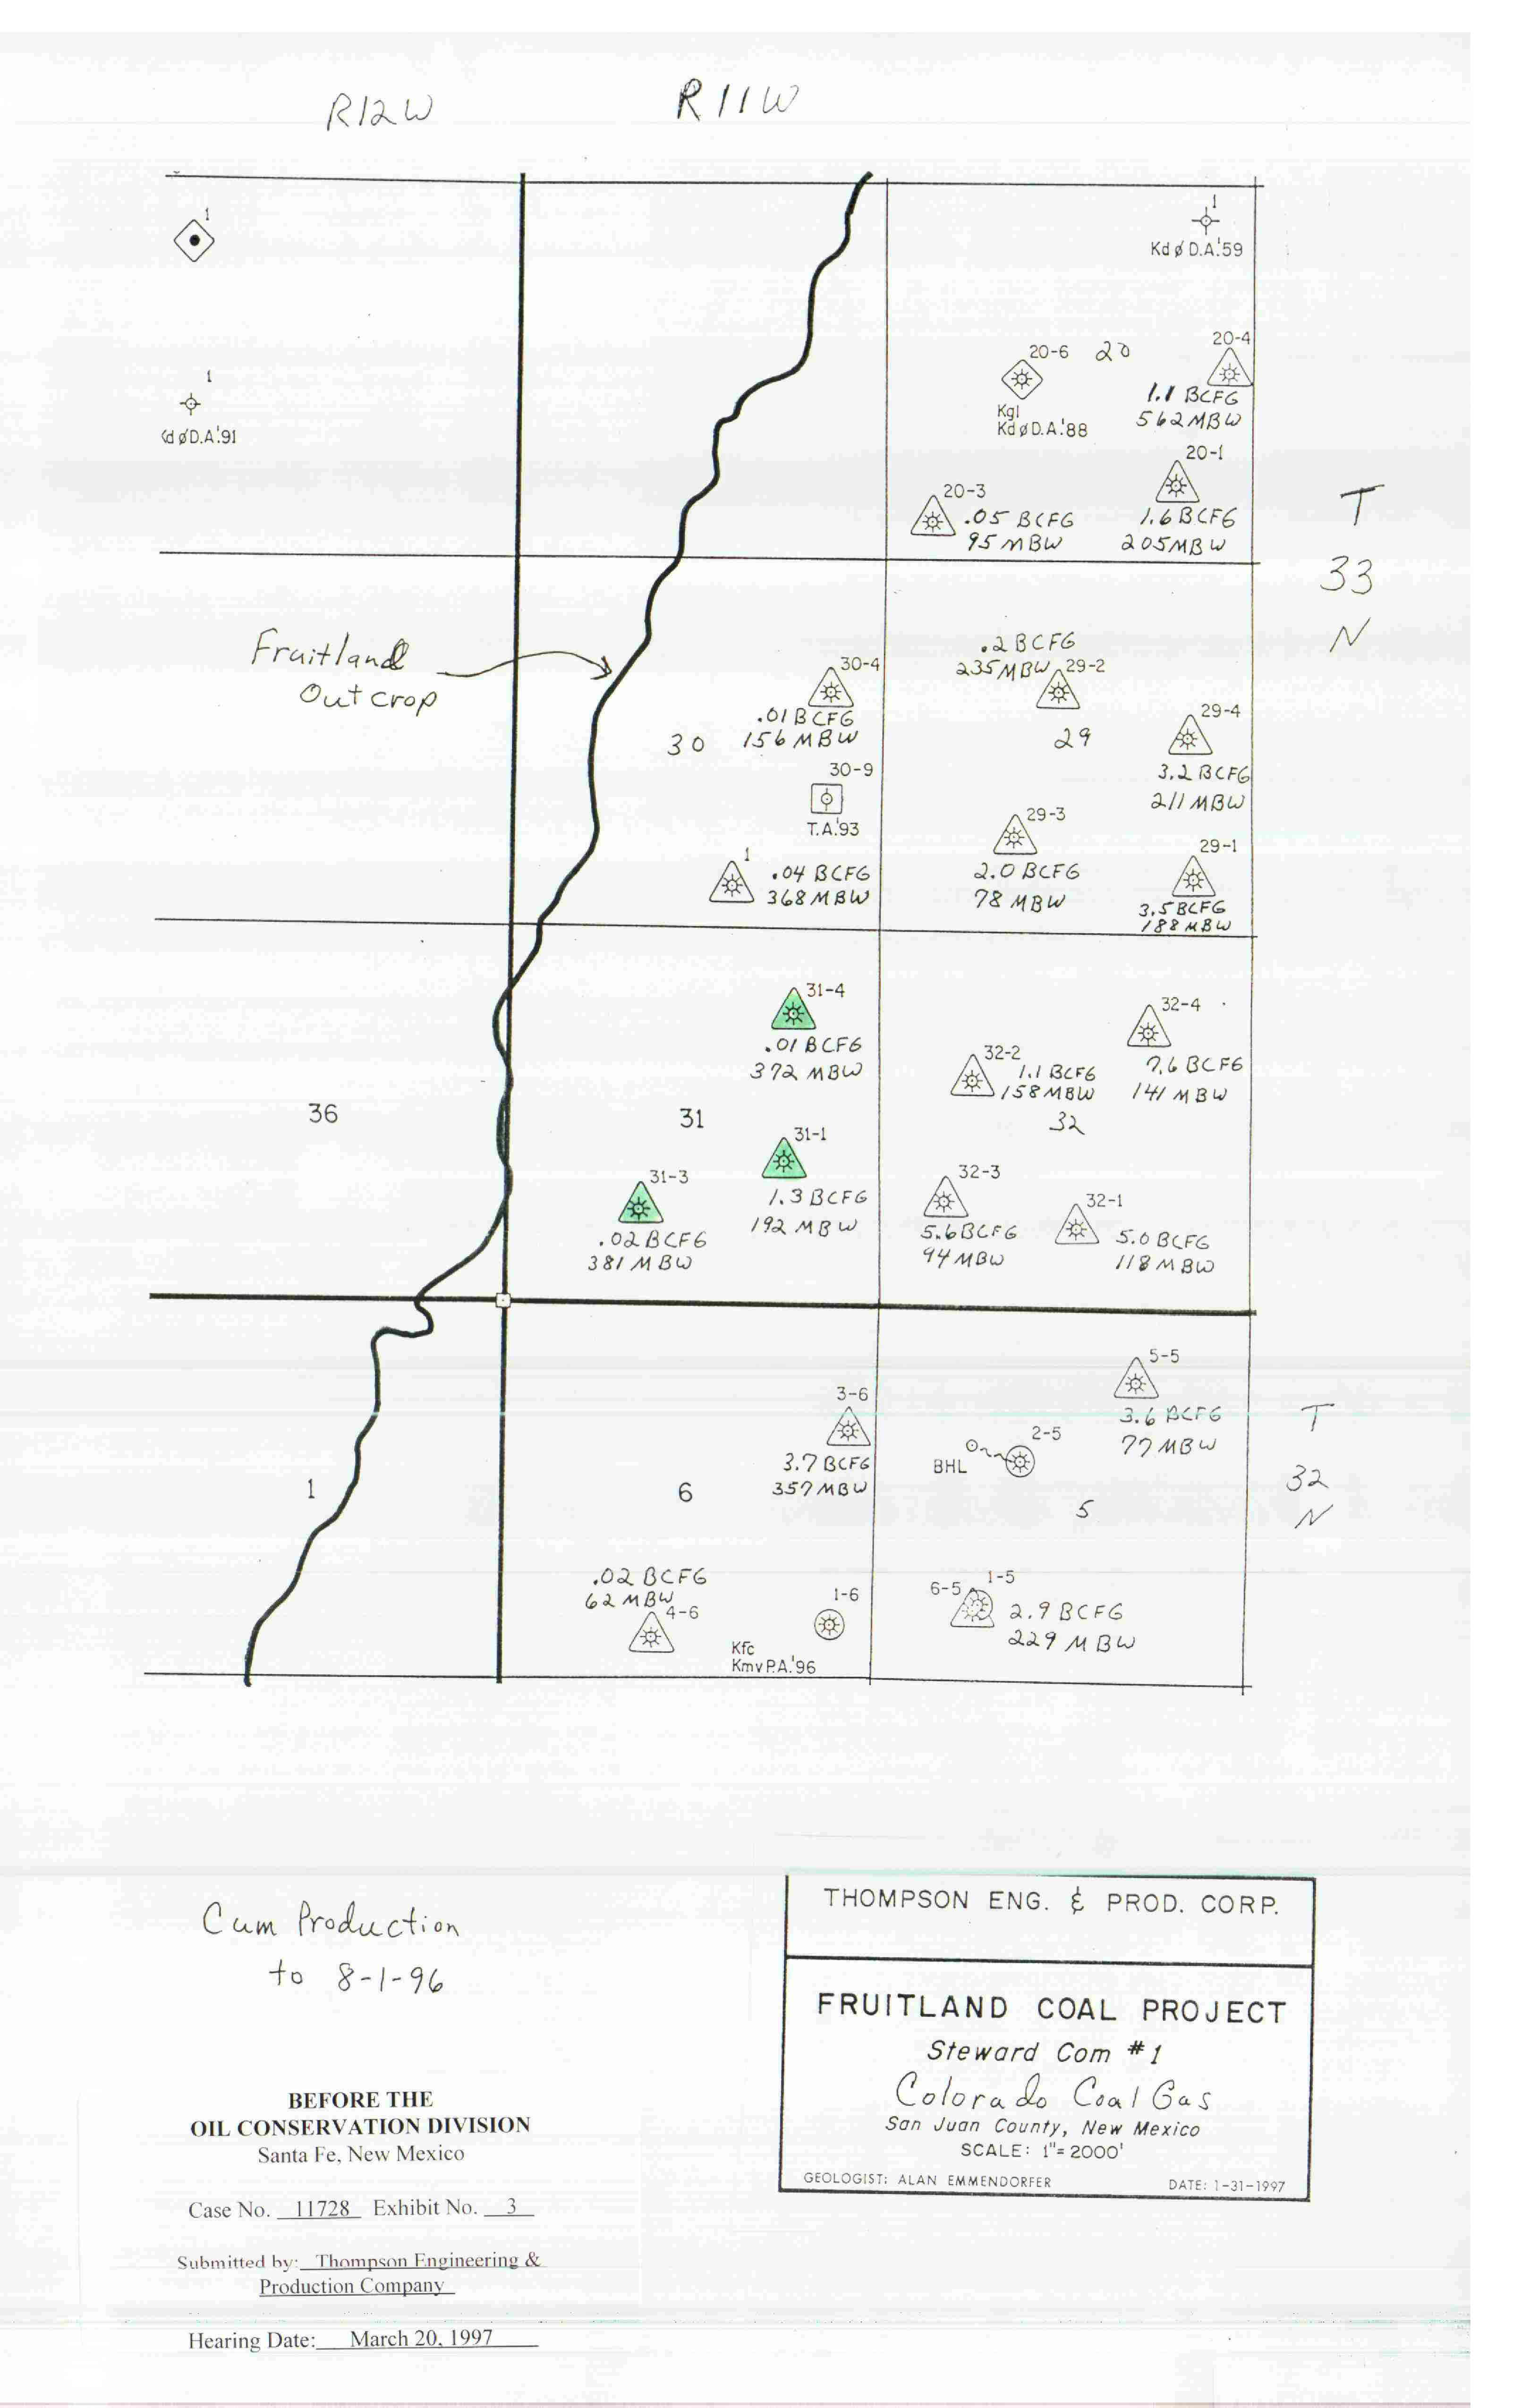 R12W
R11W
1
1
Kd ø D.A.'59
1
Kd ø D.A.'91
20-6
20
Kgl
Kd ø D.A.'88
20-4
1.1 BCFG
562 MBW
20-3
.05 BCFG
95 MBW
20-1
1.6 BCFG
205 MBW
T
33
N
Fruitland
Outcrop
30-4
.01 BCFG
156 MBW
30
30-9
T.A.'93
1
.04 BCFG
368 MBW
.2 BCFG
235 MBW
29-2
29
29-4
3.2 BCFG
211 MBW
29-3
2.0 BCFG
78 MBW
29-1
3.5 BCFG
188 MBW
36
31
31-4
.01 BCFG
372 MBW
31-1
1.3 BCFG
192 MBW
31-3
.02 BCFG
381 MBW
32-2
1.1 BCFG
158 MBW
32
32-4
7.6 BCFG
141 MBW
32-3
5.6 BCFG
94 MBW
32-1
5.0 BCFG
118 MBW
1
6
3-6
3.7 BCFG
357 MBW
.02 BCFG
62 MBW
4-6
1-6
Kfc
Kmv P.A.'96
5-5
3.6 BCFG
77 MBW
2-5
BHL
5
6-5
1-5
2.9 BCFG
229 MBW
T
32
N
Cum Production
to 8-1-96
THOMPSON ENG. & PROD. CORP.
FRUITLAND COAL PROJECT
Steward Com #1
Colorado Coal Gas
San Juan County, New Mexico
SCALE: 1"=2000'
GEOLOGIST: ALAN EMMENDORFER
DATE: 1-31-1997
BEFORE THE
OIL CONSERVATION DIVISION
Santa Fe, New Mexico
Case No. 11728 Exhibit No. 3
Submitted by: Thompson Engineering &
Production Company
Hearing Date: March 20, 1997